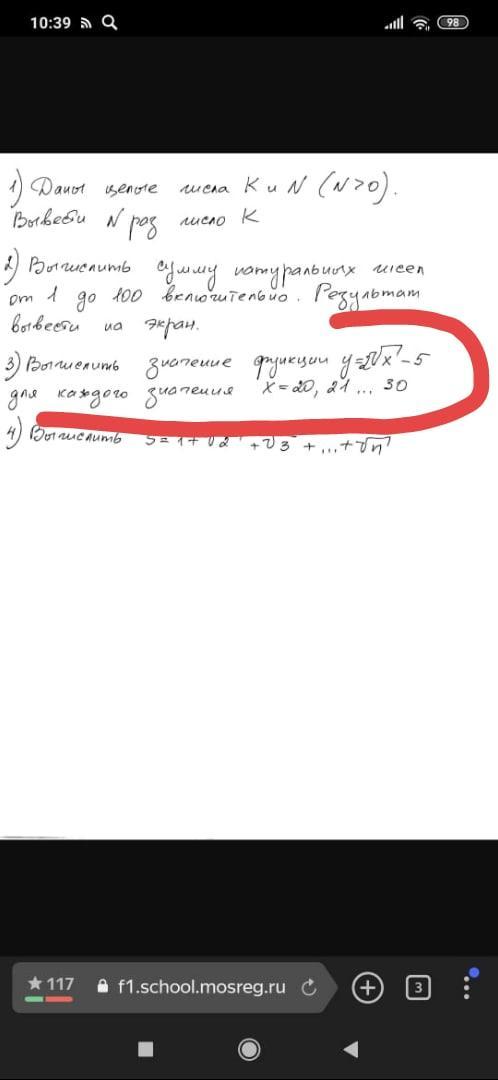 10:39
98
1) Даны целые числа K и N (N>0).
Вывести N раз число K
2) Вычислить сумму натуральных чисел
от 1 до 100 включительно. Результат
вывести на экран.
3) Вычислить значение функции y=2√x-5
для каждого значения x=20, 21... 30
4) Вычислить S=1+√2+√3+...+√n
117 f1.school.mosreg.ru 3